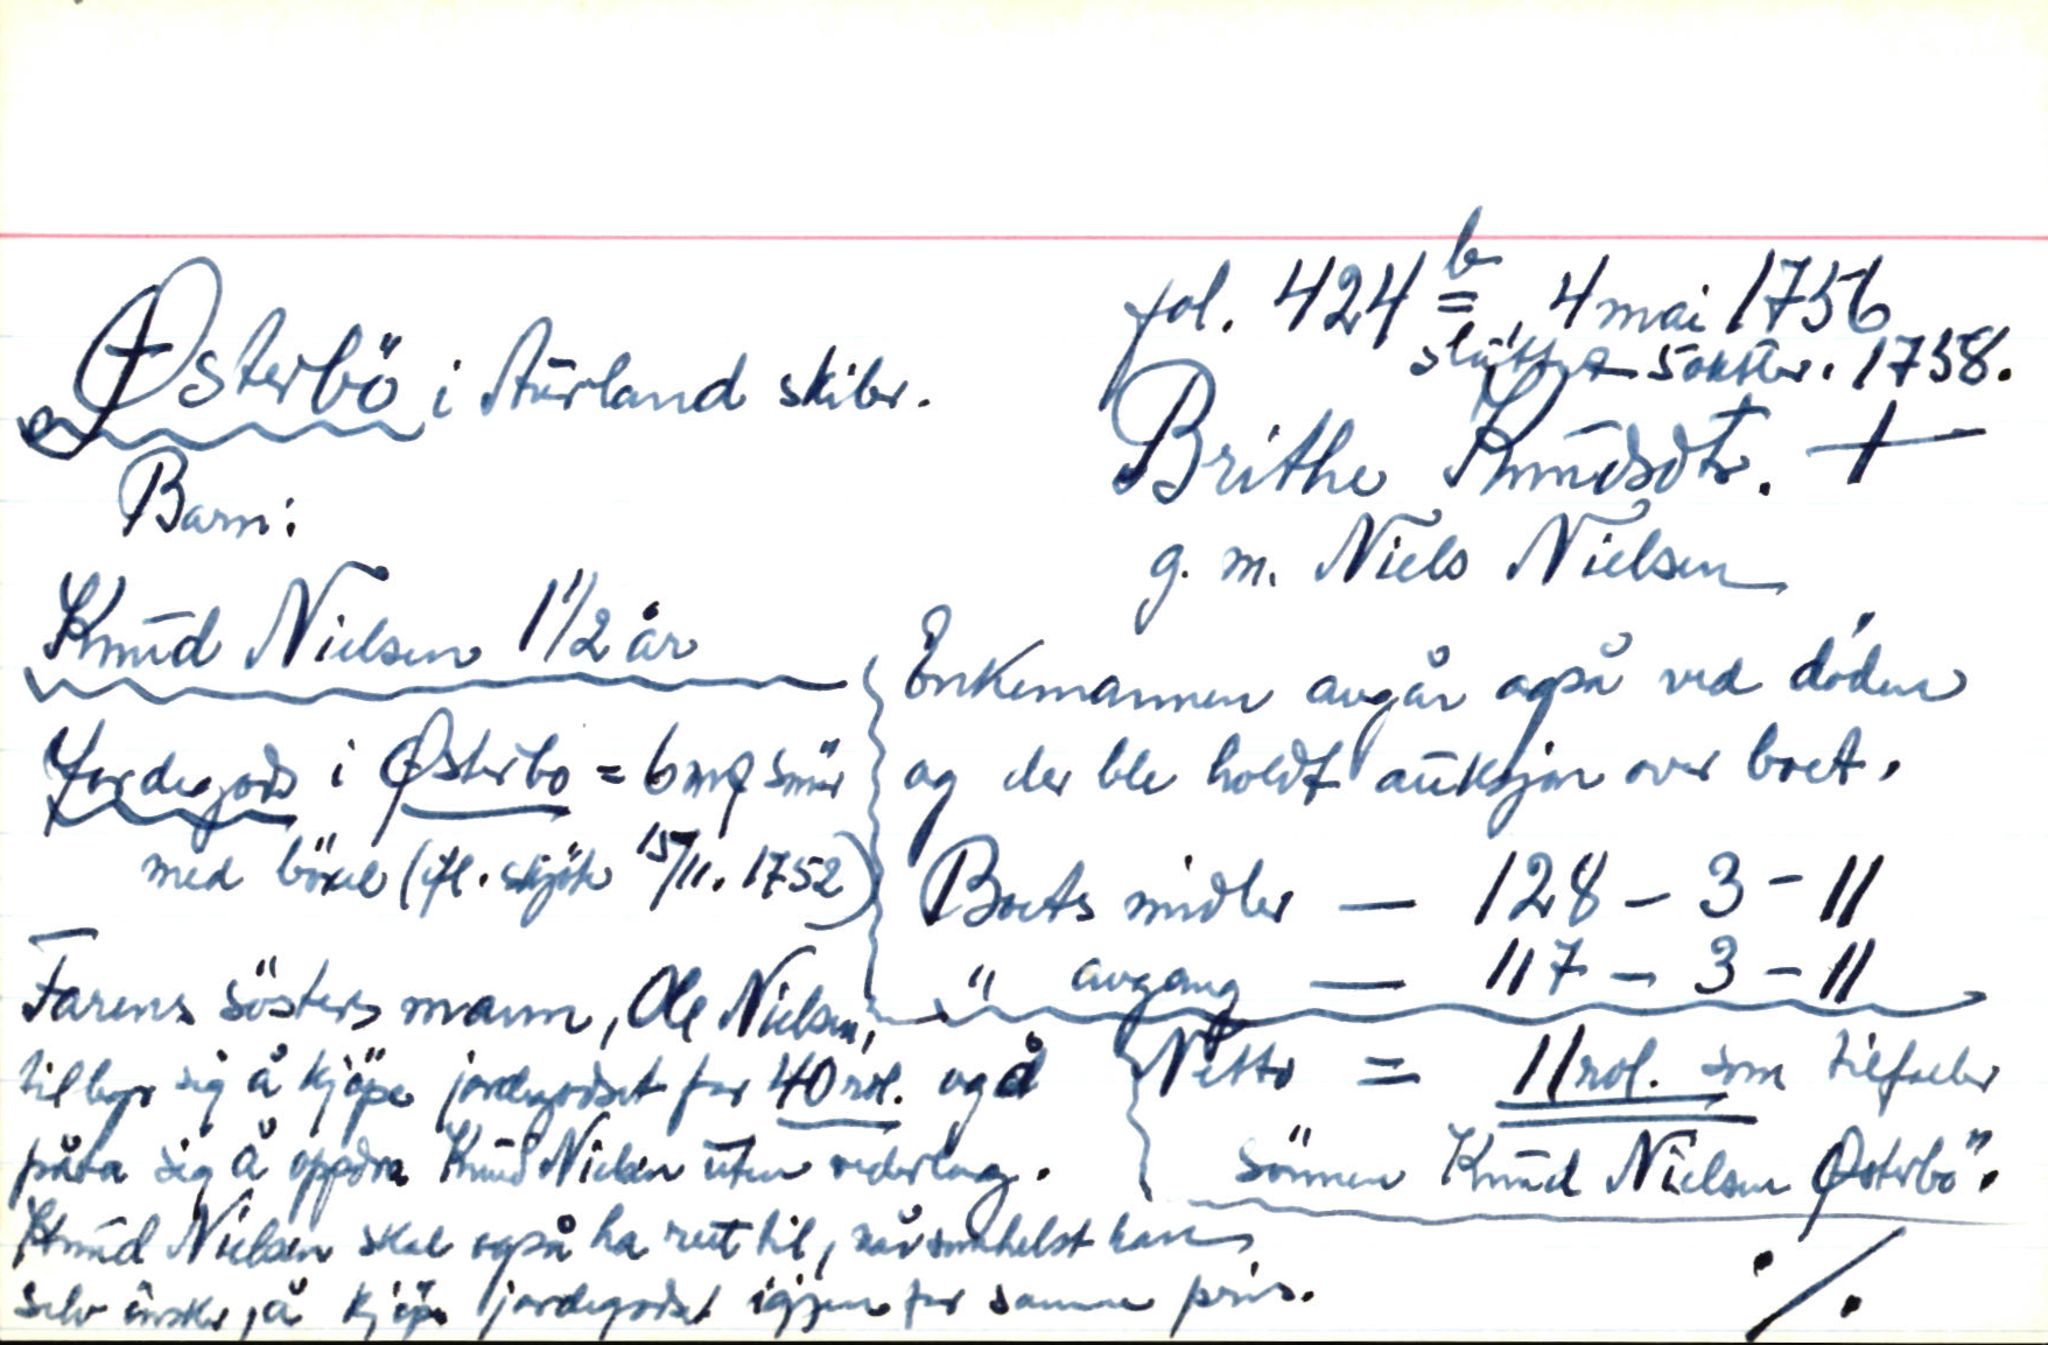 fol. 424 b = 4 mai 1756
sluttet 5 oktbr. 1758.
Østerbö i Aurland skibr.
Brithe Knudsdtr. +
g. m. Niels Nielsen
Barn:
Knud Nielsen 1 1/2 år
Jordegods i Østerbo = 6 mq smör
med böxel (ifl. skjöte 15/11. 1752)
Enkemannen avgår også ved döden
og der ble holdt auksjon over boet.
Boets midler — 128 – 3 – 11
" avgang — 117 – 3 – 11
Netto = 11 rdl. som tilfaller
sönnen Knud Nielsen Østerbö.
Farens sösters mann, Ole Nielsen,
tilbyr sig å kjöpe jordegodset for 40 rdl. og å
påta sig å oppdra Knud Nielsen uten vederlag.
Knud Nielsen skal også ha rett til, når somhelst han
selv önsker, å kjöpe jordegodset igjen for samme pris.
./.